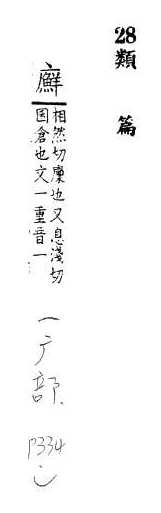 28類 篇
廯
相然切廩也又息淺切
囷倉也文一重音一
(广部. P334)